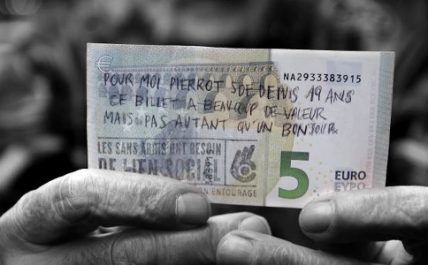 NA2933383915
POUR MOI PIERROT SDF DEPUIS 19 ANS
CE BILLET A BEAUCOUP DE VALEUR
MAIS PAS AUTANT QU'UN BONJOUR.
LES SANS ABRIS ONT BESOIN
DE LIEN SOCIAL
ENTOURAGE
5
EURO
ΕΥΡΩ